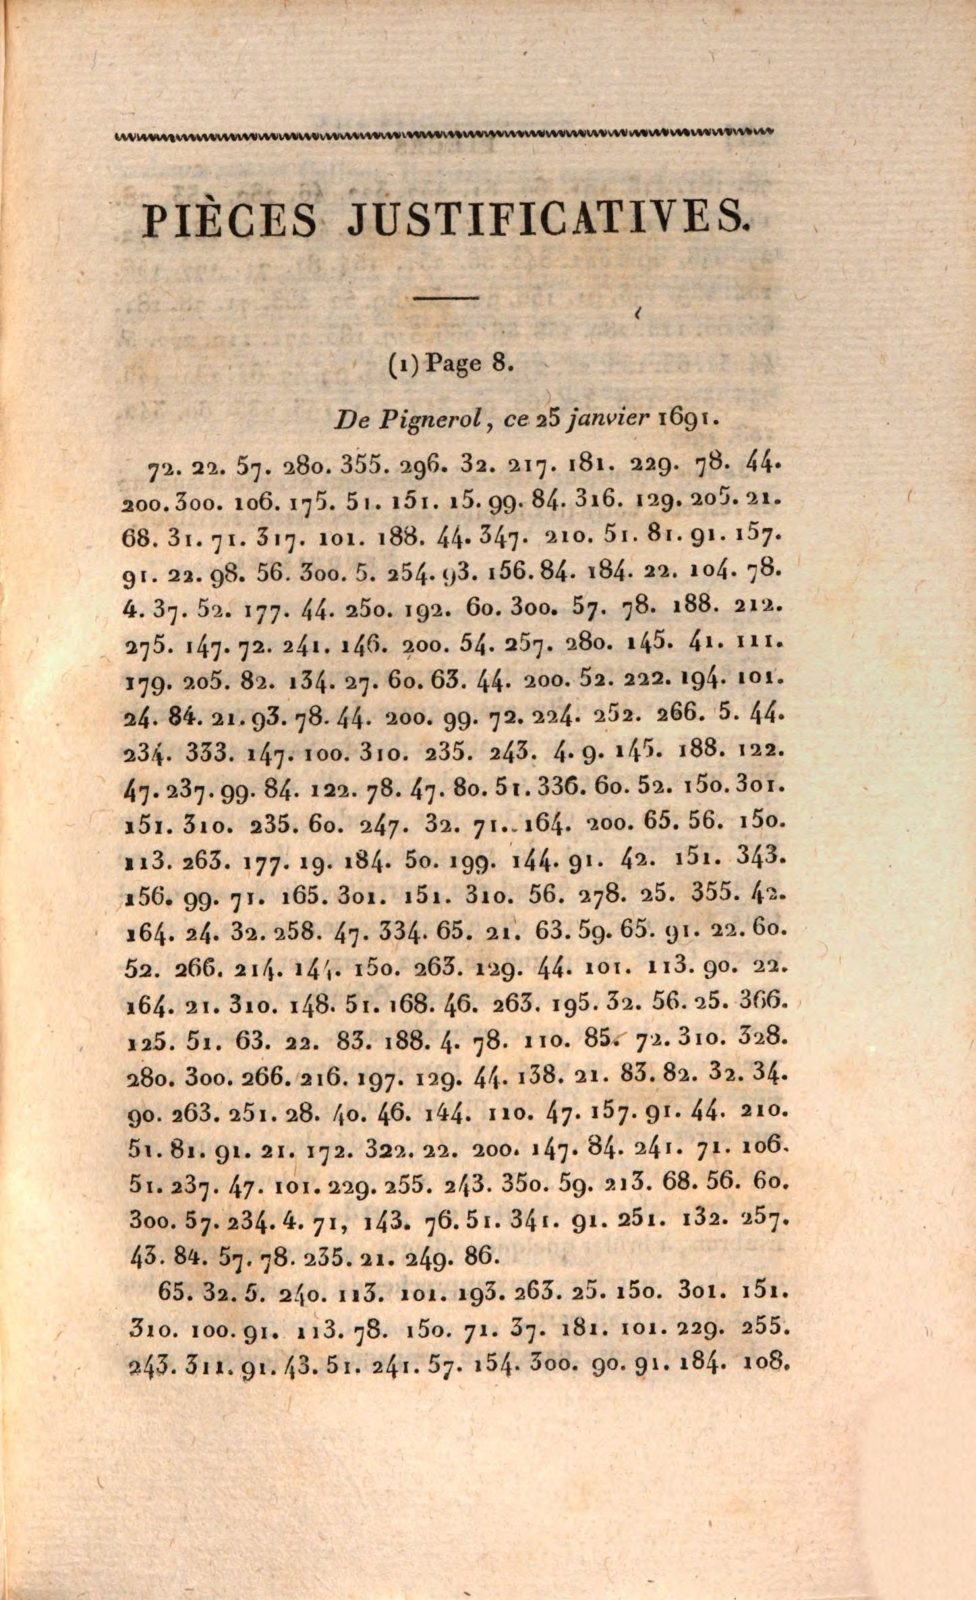 PIÈCES JUSTIFICATIVES.
(1) Page 8.
De Pignerol, ce 25 janvier 1691.
72. 22. 57. 280. 355. 296. 32. 217. 181. 229. 78. 44.
200. 300. 106. 175. 51. 151. 15. 99. 84. 316. 129. 205. 21.
68. 31. 71. 317. 101. 188. 44. 347. 210. 51. 81. 91. 157.
91. 22. 98. 56. 300. 5. 254. 93. 156. 84. 184. 22. 104. 78.
4. 37. 52. 177. 44. 250. 192. 60. 300. 57. 78. 188. 212.
275. 147. 72. 241. 146. 200. 54. 257. 280. 145. 41. 111.
179. 205. 82. 134. 27. 60. 63. 44. 200. 52. 222. 194. 101.
24. 84. 21. 93. 78. 44. 200. 99. 72. 224. 252. 266. 5. 44.
234. 333. 147. 100. 310. 235. 243. 4. 9. 145. 188. 122.
47. 237. 99. 84. 122. 78. 47. 80. 51. 336. 60. 52. 150. 301.
151. 310. 235. 60. 247. 32. 71. 164. 200. 65. 56. 150.
113. 263. 177. 19. 184. 50. 199. 144. 91. 42. 151. 343.
156. 99. 71. 165. 301. 151. 310. 56. 278. 25. 355. 42.
164. 24. 32. 258. 47. 334. 65. 21. 63. 59. 65. 91. 22. 60.
52. 266. 214. 144. 150. 263. 129. 44. 101. 113. 90. 22.
164. 21. 310. 148. 51. 168. 46. 263. 195. 32. 56. 25. 366.
125. 51. 63. 22. 83. 188. 4. 78. 110. 85. 72. 310. 328.
280. 300. 266. 216. 197. 129. 44. 138. 21. 83. 82. 32. 34.
90. 263. 251. 28. 40. 46. 144. 110. 47. 157. 91. 44. 210.
51. 81. 91. 21. 172. 322. 22. 200. 147. 84. 241. 71. 106.
51. 237. 47. 101. 229. 255. 243. 350. 59. 213. 68. 56. 60.
300. 57. 234. 4. 71, 143. 76. 51. 341. 91. 251. 132. 257.
43. 84. 57. 78. 235. 21. 249. 86.
65. 32. 5. 240. 113. 101. 193. 263. 25. 150. 301. 151.
310. 100. 91. 113. 78. 150. 71. 37. 181. 101. 229. 255.
243. 311. 91. 43. 51. 241. 57. 154. 300. 90. 91. 184. 108.